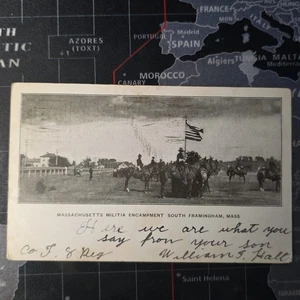 AZORES
(TOXT)
+1
TH
TIC
AN
FRANCE
MON
Madrid
SPAIN
Algiers
TUNISIA
MALTA
Mediterranean
MOROCCO
CANARY
MASSACHUSETTS MILITIA ENCAMPMENT SOUTH FRAMINGHAM, MASS
Here we are what you
say from your son
Co F. 8 Reg William F. Hall
Saint Helena